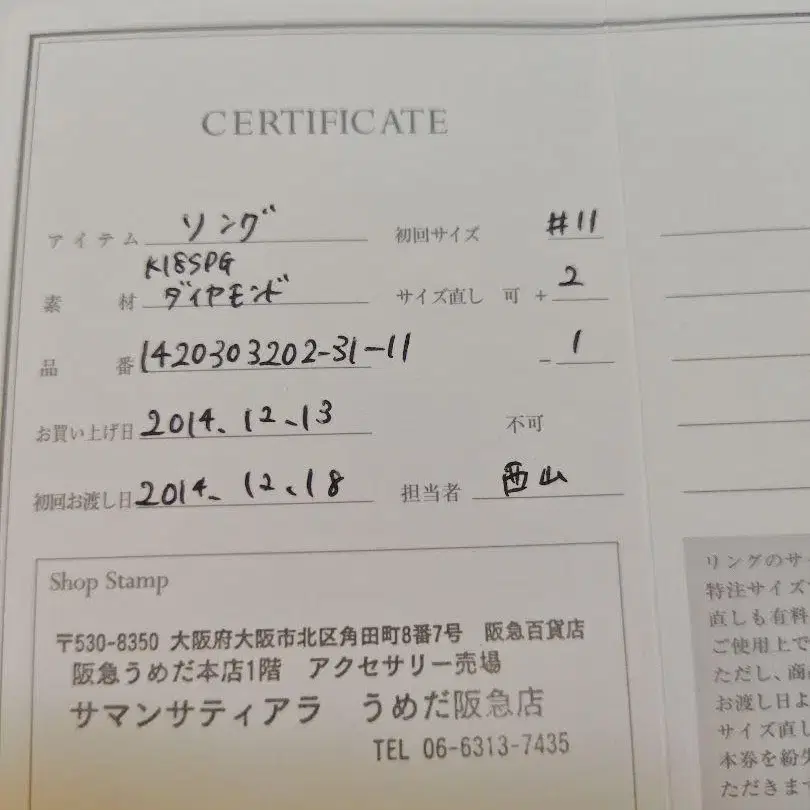 CERTIFICATE
アイテム リング 初回サイズ #11
K18SPG
素材 ダイヤモンド サイズ直し 可 + 2
品番 1420303202-31-11 - 1
お買い上げ日 2014.12.13 不可
初回お渡し日 2014.12.18 担当者 西山
Shop Stamp
〒530-8350 大阪府大阪市北区角田町8番7号 阪急百貨店
阪急うめだ本店1階 アクセサリー売場
サマンサティアラ うめだ阪急店
TEL 06-6313-7435
リングのサイ
特注サイズ
直しも有料
ご使用上で
ただし、商
お渡し日よ
サイズ直し
本券を紛失
ただきま